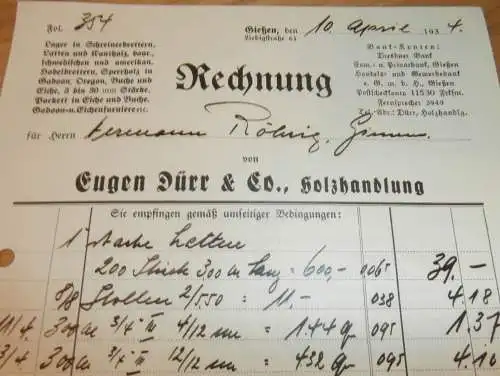 Fol. 354
Gießen, den 10. April 1934.
Liebigstraße 61
Lager in Schreinerbrettern,
Latten und Kantholz, bayr.
schwedischen und amerikan.
Hobelbrettern, Sperrholz in
Gaboon, Oregon, Buche und
Eiche, 3 bis 30 mm Stärke,
Parkett in Eiche und Buche.
Gaboon-u. Eichenfurniere etc.
Rechnung
Bank-Konten:
Dresdner Bank
Com.- u. Privatbank, Gießen
Handels- und Gewerbebank
e. G. m. b. H., Gießen
Postscheckkonto 11530 Frkfm.
Fernsprecher 3949
Tel.-Adr.: Dürr, Holzhandlg.
für Herrn Hermann Röhrig,
von
Eugen Dürr & Co., Holzhandlung
Sie empfingen gemäß umseitiger Bedingungen:
1 starke Latten
200 Stück 300 lang = 600,- 0065 39.-
2/550 = 11,- 038 4.18
11/4. 300 3/4 III 4/12 = 144 095 1.37
3/4 300 3/4 III 12/12 = 432 095 4.10